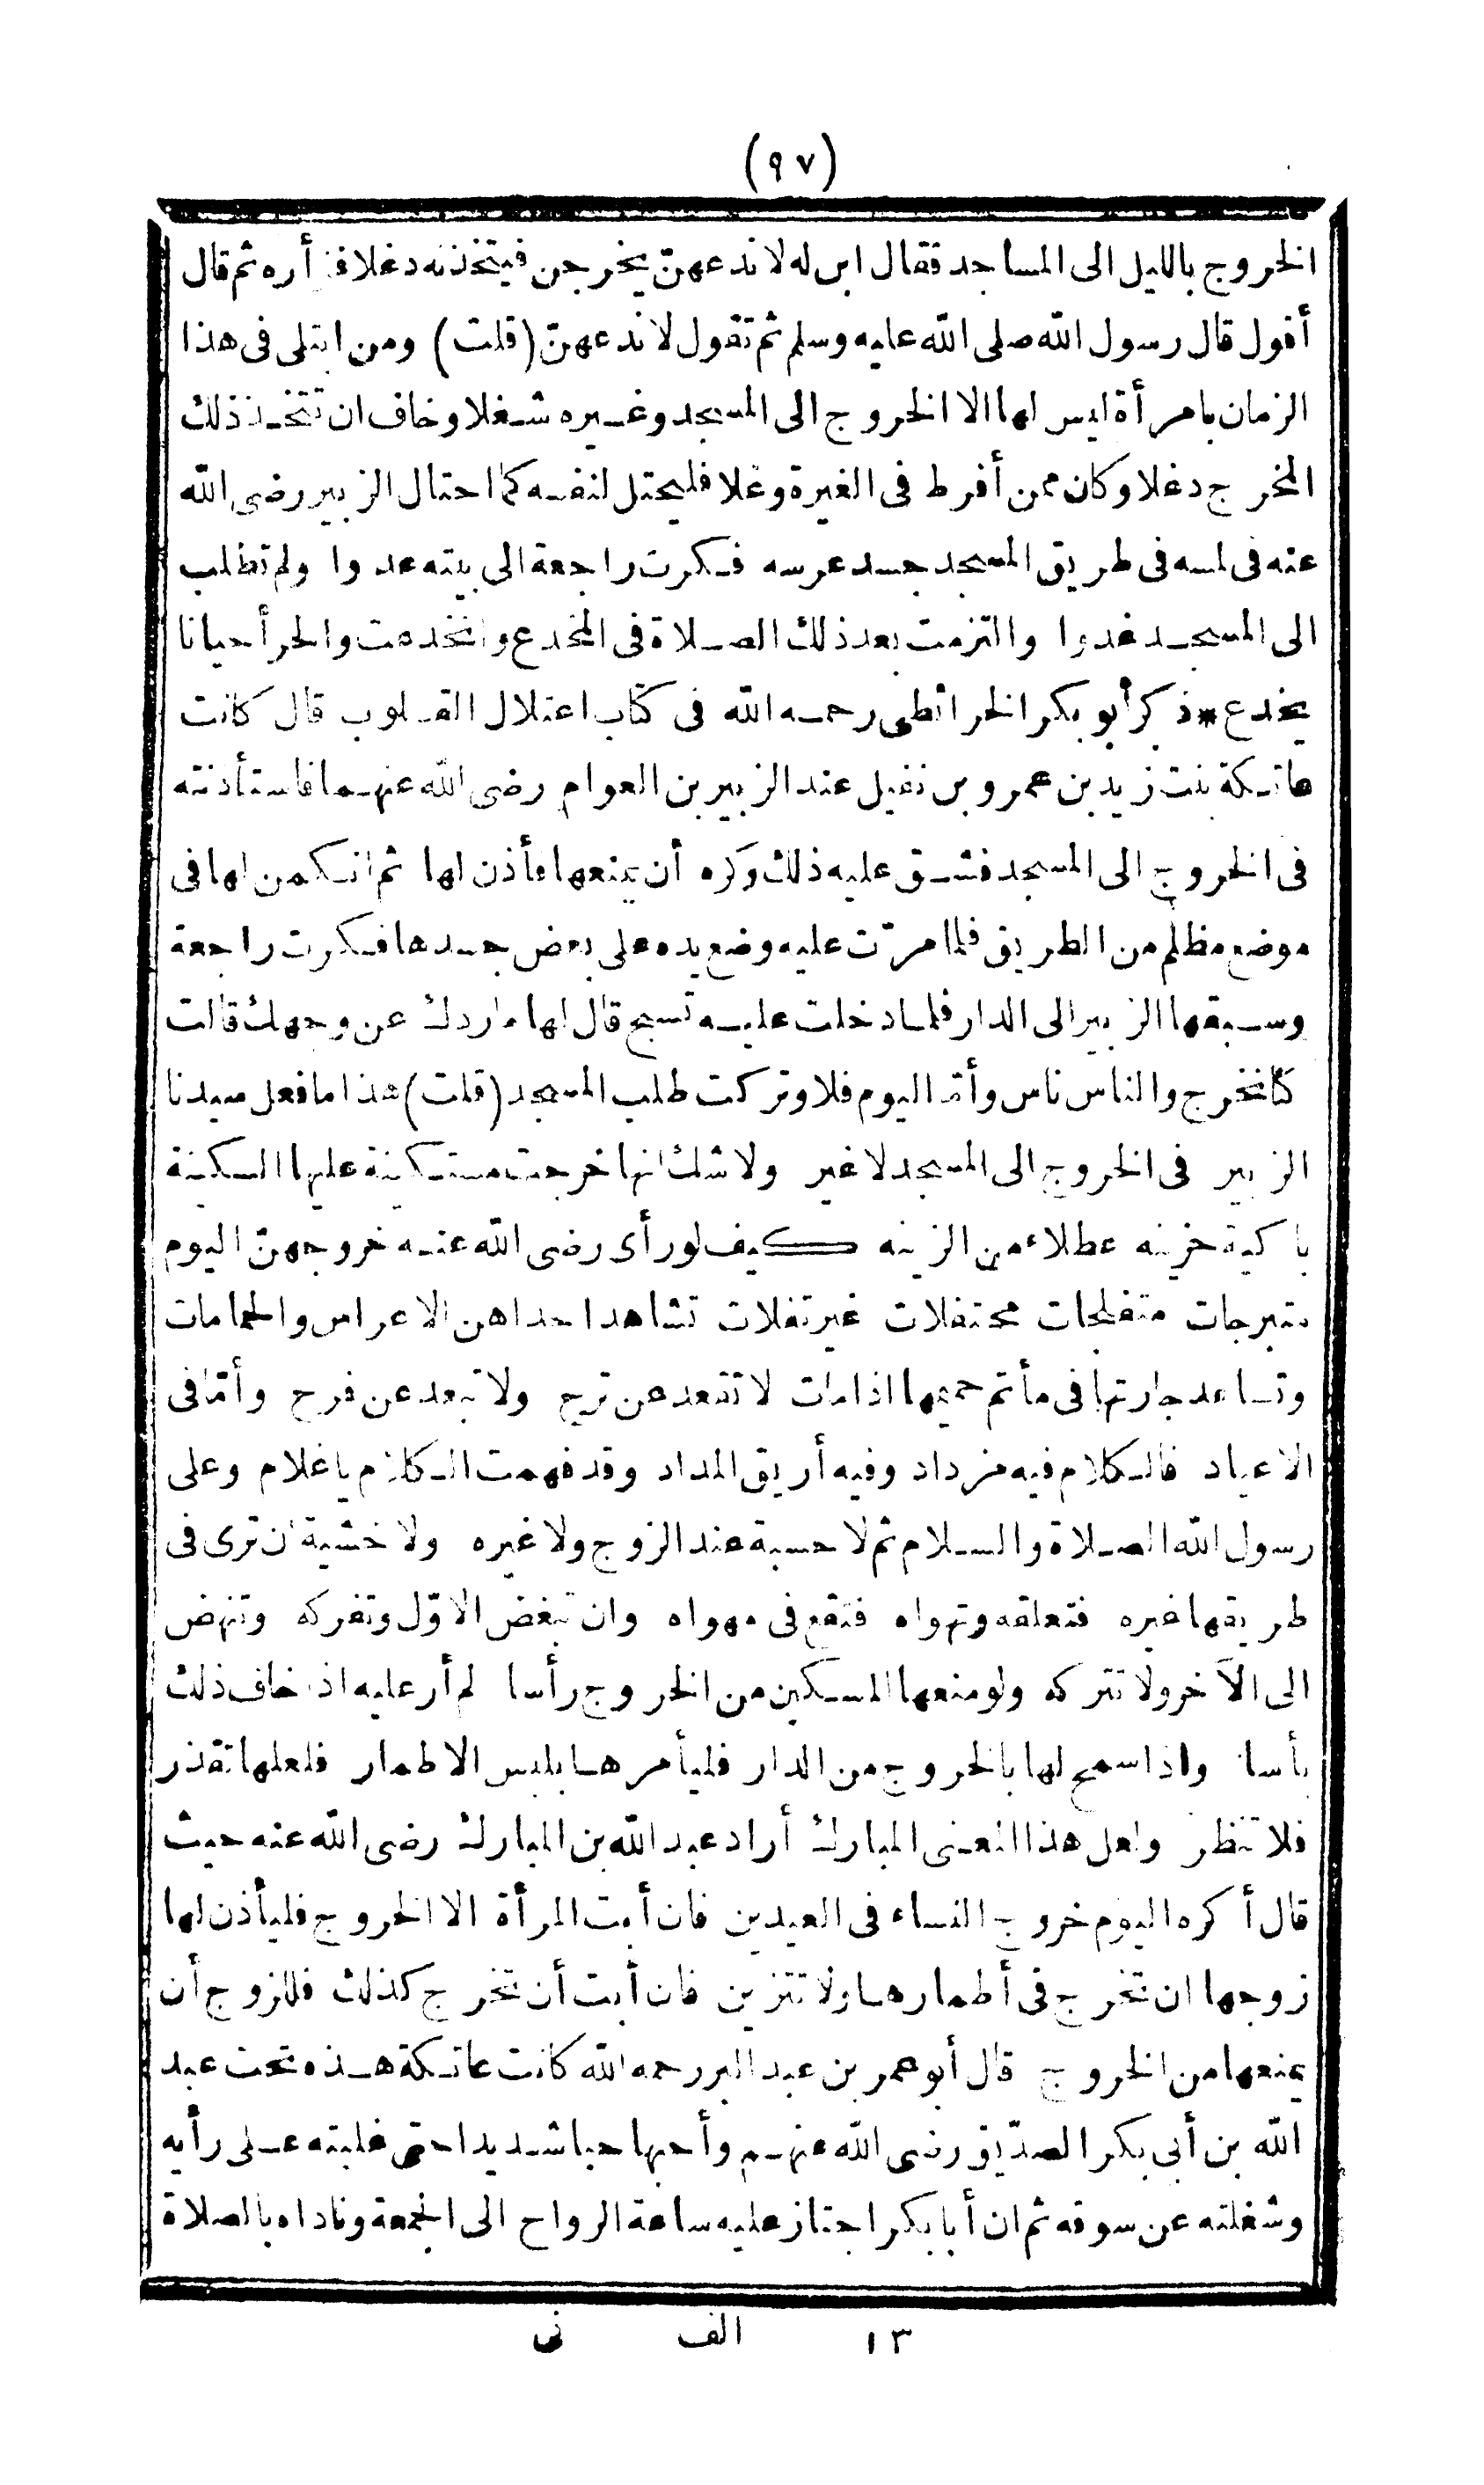 (٩٧)
الخروج بالليل الى المساجد فقال ابن له لا ندعهنّ يخرجن فيتخذنه دغلا أره ثم قال
أقول قال رسول الله صلى الله عليه وسلم ثم تقول لا ندعهنّ (قلت) ومن ابتلى فى هذا
الزمان بامرأة ليس لها الا الخروج الى المسجد وغيره شغلا وخاف ان تتخذ ذلك
المخرج دغلا وكان ممن أفرط فى الغيرة وغلا فليحتل لنفسه كما احتال الزبير رضى الله
عنه فى لمسه فى طريق المسجد جسد عرسه فكرت راجعة الى بيته عدوا ولم تطلب
الى المسجد غدوا والتزمت بعد ذلك الصلاة فى المخدع وانخدعت والحر أحيانا
يخدع * ذكر أبو بكر الخرائطى رحمه الله فى كتاب اعتلال القلوب قال كانت
عاتكة بنت زيد بن عمرو بن نفيل عند الزبير بن العوام رضى الله عنهما فاستأذنته
فى الخروج الى المسجد فشق عليه ذلك وكره أن يمنعها فأذن لها ثم انكمن لها فى
موضع مظلم من الطريق فلما مرّت عليه وضع يده على بعض جسدها فكرت راجعة
وسبقها الزبير الى الدار فلما دخلت عليه تسبح قال لها ما ردك عن وجهك قالت
كنا نخرج والناس ناس وأمّا اليوم فلا وتركت طلب المسجد (قلت) هذا ما فعل سيدنا
الزبير فى الخروج الى المسجد لا غير ولا شك انها خرجت مستكينة عليها السكينة
باكية حزينه عطلاء من الزينه كيف لو رأى رضى الله عنه خروجهنّ اليوم
متبرجات متفلجات محتفلات غير تفلات تشاهد احداهن الاعراس والحمامات
وتساعد جارتها فى مأتم حميمها اذا مات لا تقعد عن ترح ولا تبعد عن فرح وأمّا فى
الاعياد فالكلام فيه مزداد وفيه أريق المداد وقد فهمت الكلام يا غلام وعلى
رسول الله الصلاة والسلام ثم لا حسبة عند الزوج ولا غيره ولا خشية ان ترى فى
طريقها غيره فتعلقه وتهواه فتقع فى مهواه وان تبغض الاوّل وتفركه وتنهض
الى الآخر ولا تتركه ولو منعها المسكين من الخروج رأسا لم أر عليه اذا خاف ذلك
بأسا واذا سمح لها بالخروج من الدار فليأمرها بلبس الاطمار فلعلها تقذر
فلا تنظر ولعل هذا المعنى المبارك أراد عبد الله بن المبارك رضى الله عنه حيث
قال أكره اليوم خروج النساء فى العيدين فان أبت المرأة الا الخروج فليأذن لها
زوجها ان تخرج فى أطمارها ولا تتزين فان أبت أن تخرج كذلك فللزوج أن
يمنعها من الخروج قال أبو عمر بن عبد البر رحمه الله كانت عاتكة هذه تحت عبد
الله بن أبى بكر الصدّيق رضى الله عنهم وأحبها حبا شديدا حتى غلبته على رأيه
وشغلته عن سوقه ثم ان أبا بكر اجتاز عليه ساعة الرواح الى الجمعة وناداه بالصلاة
١٣ الف نى